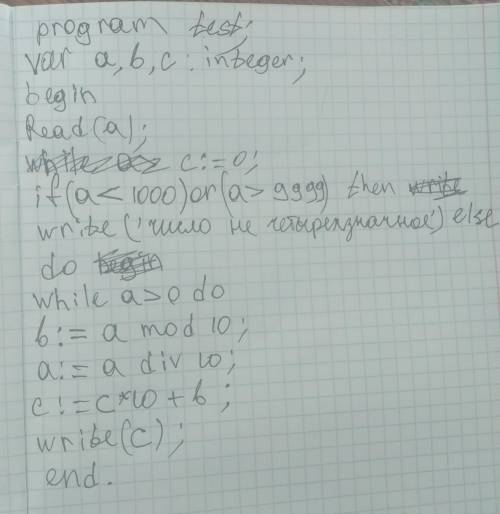 program test;
var a, b, c : integer;
begin
Read(a);
c:=0;
if(a<1000)or(a>9999) then
write('число не четырехзначное') else
do
while a>0 do
b:= a mod 10;
a:= a div 10;
c:=c*10+b;
write(c);
end.